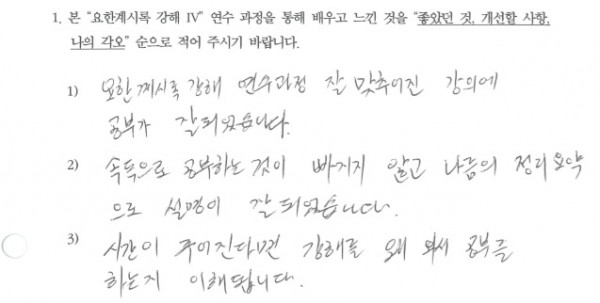 1. 본 “요한계시록 강해 IV” 연수 과정을 통해 배우고 느낀 것을 “좋았던 것, 개선할 사항,
나의 각오” 순으로 적어 주시기 바랍니다.
1) 요한계시록 강해 연수과정 잘 맞추어진 강의에
공부가 잘되었습니다.
2) 속독으로 공부하는 것이 빠지지 않고 나름의 정리요약
으로 설명이 잘 되었습니다.
3) 시간이 주어진다면 강해를 왜 와서 공부를
하는지 이해됩니다.